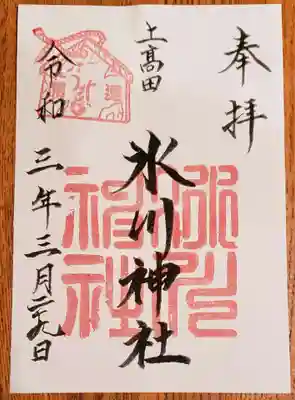 奉拝
上髙田
氷川神社
令和三年三月二十九日
氷川神社